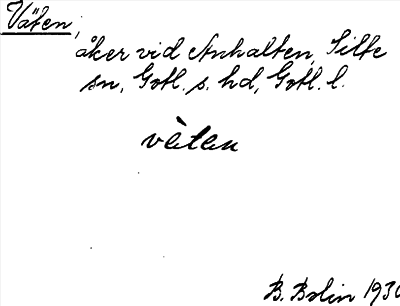 Väten,
åker vid Anhalten, Silte
sn, Gotl. s. hd, Gotl. l.
vèten
B. Bolin 1930